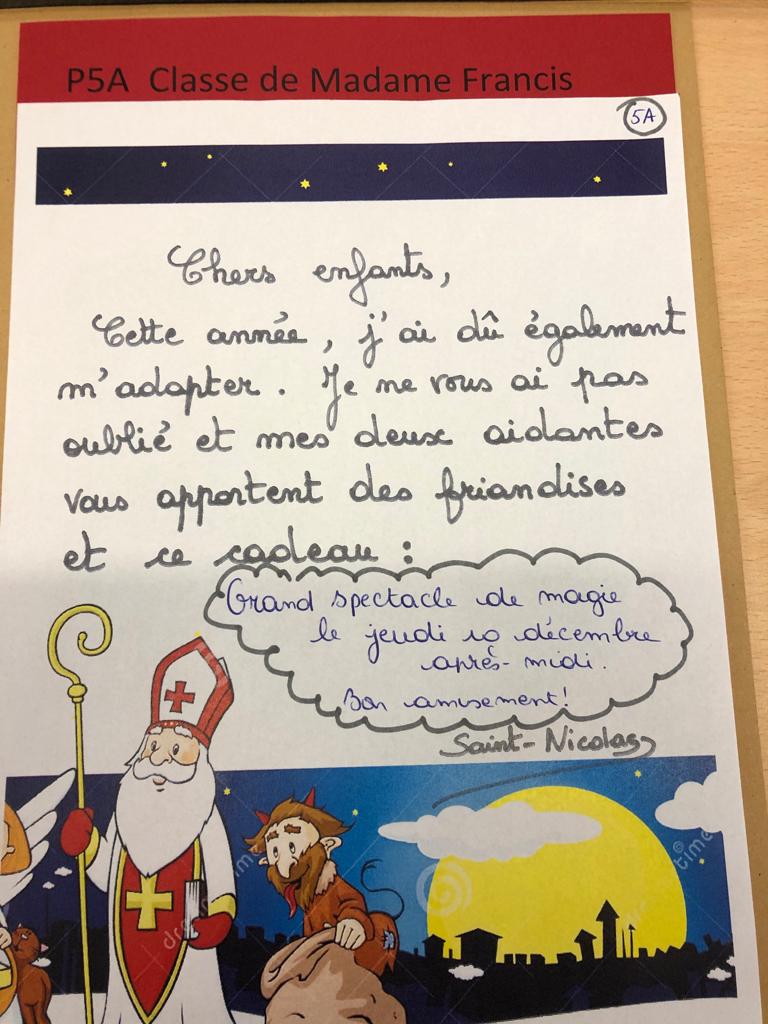 P5A Classe de Madame Francis
5A
Chers enfants,
Cette année, j'ai dû également
m'adapter. Je ne vous ai pas
oublié et mes deux aidantes
vous apportent des friandises
et ce cadeau :
Grand spectacle de magie
le jeudi 10 décembre
après-midi.
Bon amusement!
Saint-Nicolas